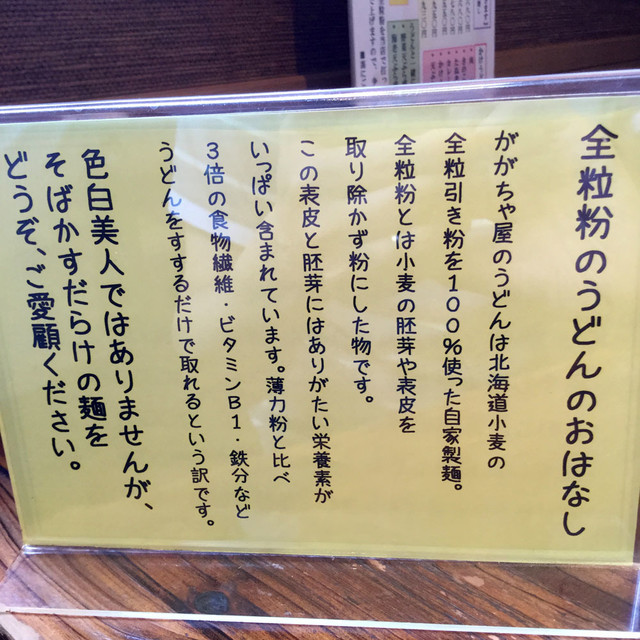 全粒粉のうどんのおはなし
ががちゃ屋のうどんは北海道小麦の
全粒引き粉を100%使った自家製麺。
全粒粉とは小麦の胚芽や表皮を
取り除かず粉にした物です。
この表皮と胚芽にはありがたい栄養素が
いっぱい含まれています。薄力粉と比べ
3倍の食物繊維・ビタミンB1・鉄分など
うどんをすするだけで取れるという訳です。
色白美人ではありませんが、
そばかすだらけの麺を
どうぞ、ご愛顧ください。